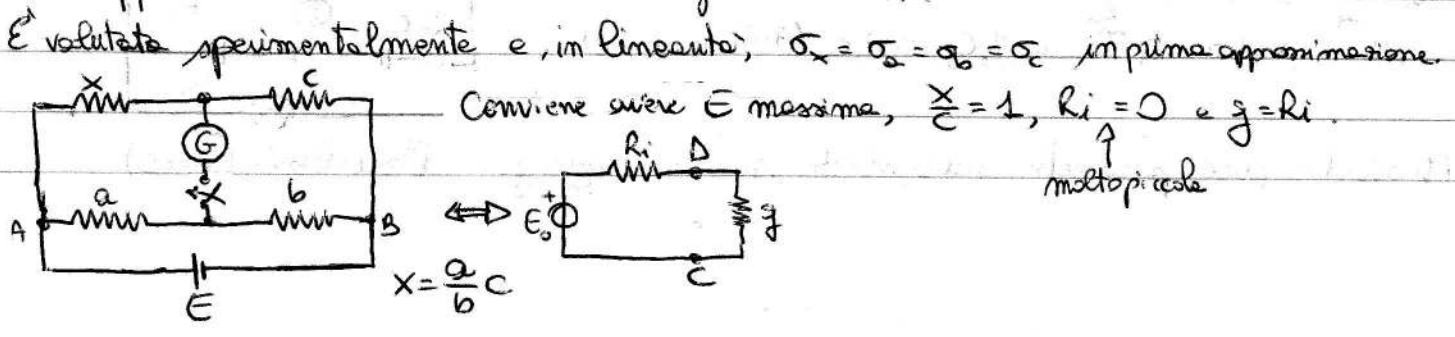 È valutata sperimentalmente e, in linearità, σx = σa = σb = σc in prima approssimazione.
Conviene avere E massima, x/c = 1, Ri = 0 e g = Ri.
molto piccola
x
c
G
a
b
A
B
E
x = a/b c
⇔
Ri
D
E₀
+
g
C